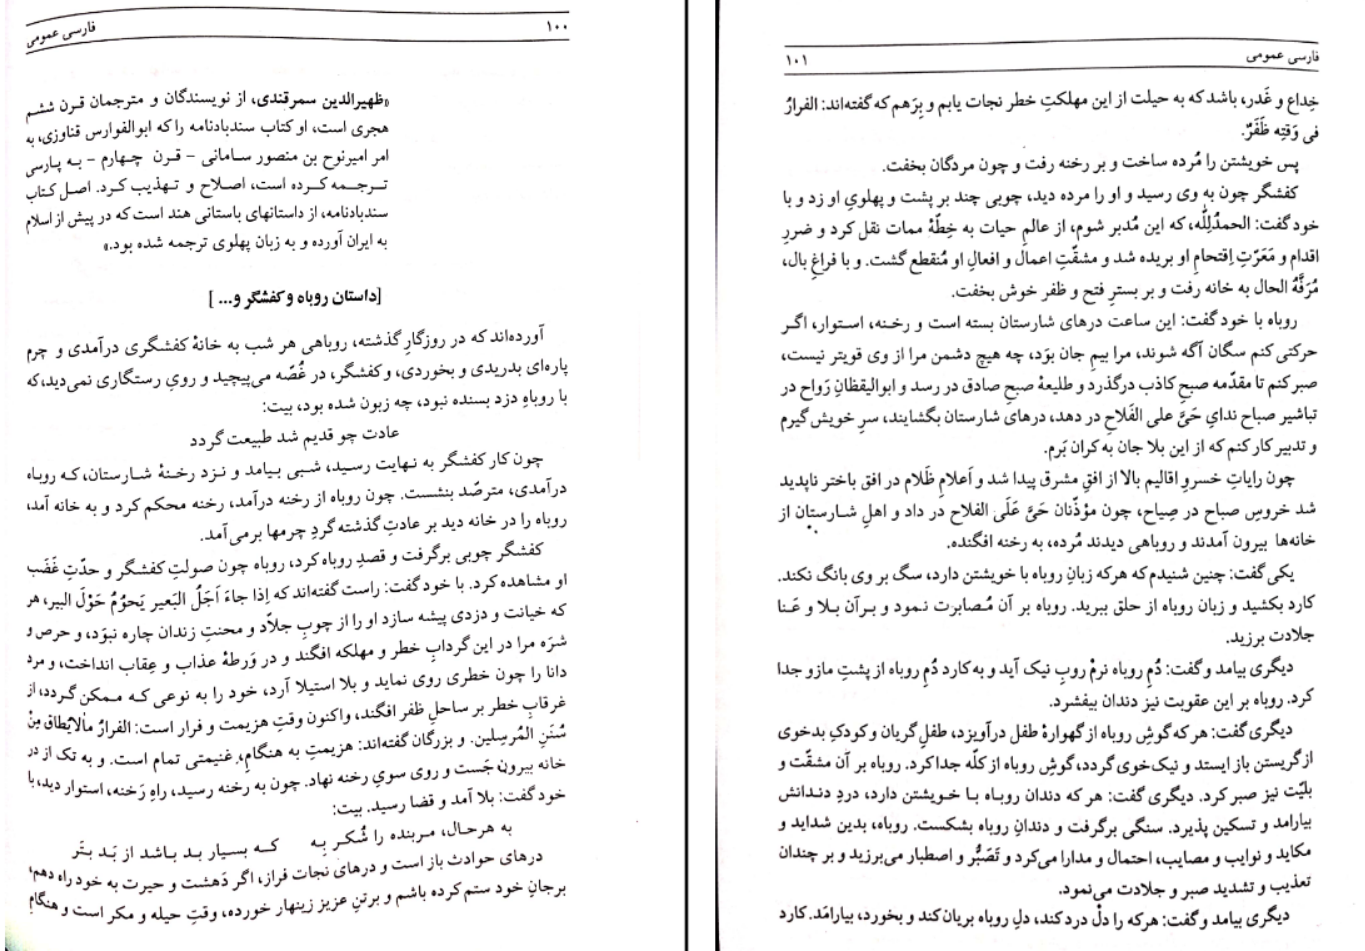 ۱۰۰
فارسی عمومی
«ظهیرالدین سمرقندی، از نویسندگان و مترجمان قرن ششم
هجری است، او کتاب سندبادنامه را که ابوالفوارس قناوزی، به
امر امیرنوح بن منصور سامانی – قرن چهارم – به پارسی
ترجمه کرده است، اصلاح و تهذیب کرد. اصل کتاب
سندبادنامه، از داستانهای باستانی هند است که در پیش از اسلام
به ایران آورده و به زبان پهلوی ترجمه شده بود.»
[داستان روباه و کفشگر و... ]
آورده‌اند که در روزگارِ گذشته، روباهی هر شب به خانهٔ کفشگری درآمدی و چرم
پاره‌ای بدریدی و بخوردی، و کفشگر، در غُصّه می‌پیچید و رویِ رستگاری نمی‌دید، که
با روباهِ دزد بسنده نبود، چه زبون شده بود، بیت:
عادت چو قدیم شد طبیعت گردد
چون کار کفشگر به نهایت رسید، شبی بیامد و نزد رخنهٔ شارستان، که روباه
درآمدی، مترصّد بنشست. چون روباه از رخنه درآمد، رخنه محکم کرد و به خانه آمد،
روباه را در خانه دید بر عادتِ گذشته گردِ چرمها برمی‌آمد.
کفشگر چوبی برگرفت و قصدِ روباه کرد، روباه چون صولتِ کفشگر و حدّتِ غَضَب
او مشاهده کرد. با خود گفت: راست گفته‌اند که اِذا جاءَ اَجَلُ البَعیر یَحوُمُ حَوْلَ البیر، هر
که خیانت و دزدی پیشه سازد او را از چوبِ جلاّد و محنتِ زندان چاره نبوَد، و حرص و
شرَه مرا در این گردابِ خطر و مهلکه افگند و در وَرطهٔ عذاب و عِقاب انداخت، و مرد
دانا را چون خطری روی نماید و بلا استیلا آرد، خود را به نوعی که ممکن گردد، از
غرقابِ خطر بر ساحلِ ظفر افگند، واکنون وقتِ هزیمت و فرار است: الفرارُ مالایُطاق مِنْ
سُنَنِ المُرسلین. و بزرگان گفته‌اند: هزیمتِ به هنگام، غنیمتی تمام است. و به تک از در
خانه بیرون جَست و روی سویِ رخنه نهاد. چون به رخنه رسید، راهِ رَخنه، استوار دید، با
خود گفت: بلا آمد و قضا رسید. بیت:
به هرحال، مربنده را شُکر بِه که بسیار بد باشد از بَد بتَر
درهای حوادث باز است و درهای نجات فراز، اگر دَهشت و حیرت به خود راه دهم،
برجانِ خود ستم کرده باشم و برتنِ عزیز زینهار خورده، وقتِ حیله و مکر است و هنگامِ
فارسی عمومی
۱۰۱
خِداع و غَدر، باشد که به حیلت از این مهلکتِ خطر نجات یابم و بِرَهم که گفته‌اند: الفرارُ
فی وَقتِه ظَفَرٌ.
پس خویشتن را مُرده ساخت و بر رخنه رفت و چون مردگان بخفت.
کفشگر چون به وی رسید و او را مرده دید، چوبی چند بر پشت و پهلویِ او زد و با
خود گفت: الحمدُلِلّٰه، که این مُدبر شوم، از عالمِ حیات به خِطّهٔ ممات نقل کرد و ضررِ
اقدام و مَعَرّتِ اِقتحامِ او بریده شد و مشقّتِ اعمال و افعالِ او مُنقطع گشت. و با فراغِ بال،
مُرَفَّهُ الحال به خانه رفت و بر بسترِ فتح و ظفر خوش بخفت.
روباه با خود گفت: این ساعت درهای شارستان بسته است و رخنه، استوار، اگر
حرکتی کنم سگان آگه شوند، مرا بیمِ جان بوَد، چه هیچ دشمن مرا از وی قویتر نیست،
صبر کنم تا مقدّمه صبحِ کاذب درگذرد و طلیعهٔ صبحِ صادق در رسد و ابوالیقظانِ رَواح در
تباشیر صباح ندایِ حَیَّ علی الفَلاحِ در دهد، درهای شارستان بگشایند، سرِ خویش گیرم
و تدبیر کار کنم که از این بلا جان به کران بَرم.
چون رایاتِ خسروِ اقالیم بالا از افقِ مشرق پیدا شد و اَعلامِ ظَلام در افق باختر ناپدید
شد خروسِ صباح در صِیاح، چون مؤذّنان حَیَّ عَلَی الفلاح در داد و اهلِ شارستان از
خانه‌ها بیرون آمدند و روباهی دیدند مُرده، به رخنه افگنده.
یکی گفت: چنین شنیدم که هرکه زبانِ روباه با خویشتن دارد، سگ بر وی بانگ نکند.
کارد بکشید و زبان روباه از حلق ببرید. روباه بر آن مُصابرت نمود و برآن بلا و عَنا
جلادت برزید.
دیگری بیامد و گفت: دُمِ روباه نرمْ روبِ نیک آید و به کارد دُمِ روباه از پشتِ مازو جدا
کرد. روباه بر این عقوبت نیز دندان بیفشرد.
دیگری گفت: هر که گوشِ روباه از گهوارهٔ طفل درآویزد، طفلِ گریان و کودکِ بدخوی
از گریستن باز ایستد و نیک‌خوی گردد، گوشِ روباه از کلّه جدا کرد. روباه بر آن مشقّت و
بلیّت نیز صبر کرد. دیگری گفت: هر که دندان روباه با خویشتن دارد، دردِ دندانش
بیارامد و تسکین پذیرد. سنگی برگرفت و دندانِ روباه بشکست. روباه، بدین شداید و
مکاید و نوایب و مصایب، احتمال و مدارا می‌کرد و تَصَبُّر و اصطبار می‌برزید و بر چندان
تعذیب و تشدید صبر و جلادت می‌نمود.
دیگری بیامد و گفت: هرکه را دلْ درد کند، دلِ روباه بریان کند و بخورد، بیارامَد. کارد